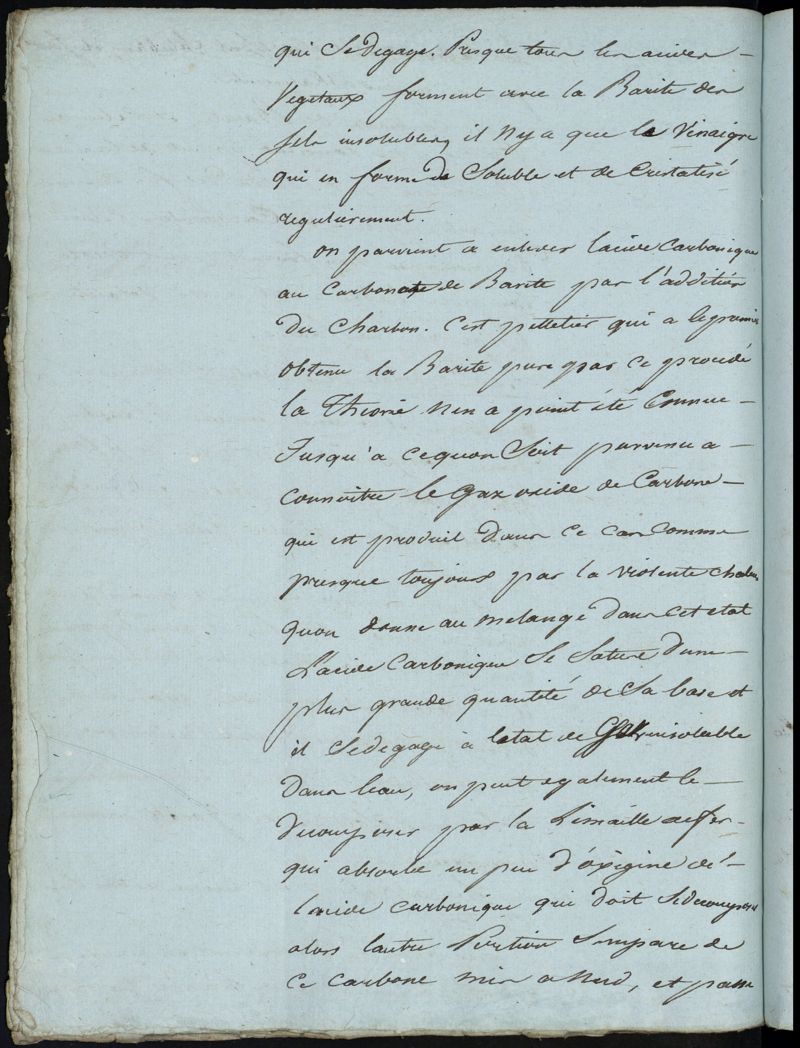 qui Se degage. Presque tous les acides
Vegetaux forment avec la Barite des
sels insolubles, il n'y a que le Vinaigre
qui en forme de Soluble et de Cristalisé
regulierement.
on parvient a enlever lacide Carbonique
au Carbonate de Barite par l'addition
Du Charbon. C'est pelletier qui a le premier
obtenu la Barite pure par ce procedé
la Théorie n'en a point été Connue
Jusqu'a ce quon Soit parvenu a
Connoitre le Gaz oxide de Carbone
qui est produit Dans ce Cas Comme
presque toujours par la violente chaleur
quon donne au melange dans cet etat
L'acide Carbonique Se Sature d'une
plus grande quantité de Sa base et
il Se degage à letat de Gaz insoluble
Dans leau, on peut egalement le
Decomposer par la Limaille de fer
qui absorbe un peu d'oxigine de
lacide carbonique qui doit Se decomposer
alors lautre Portion Sempare de
ce carbone mis a Nud, et passe